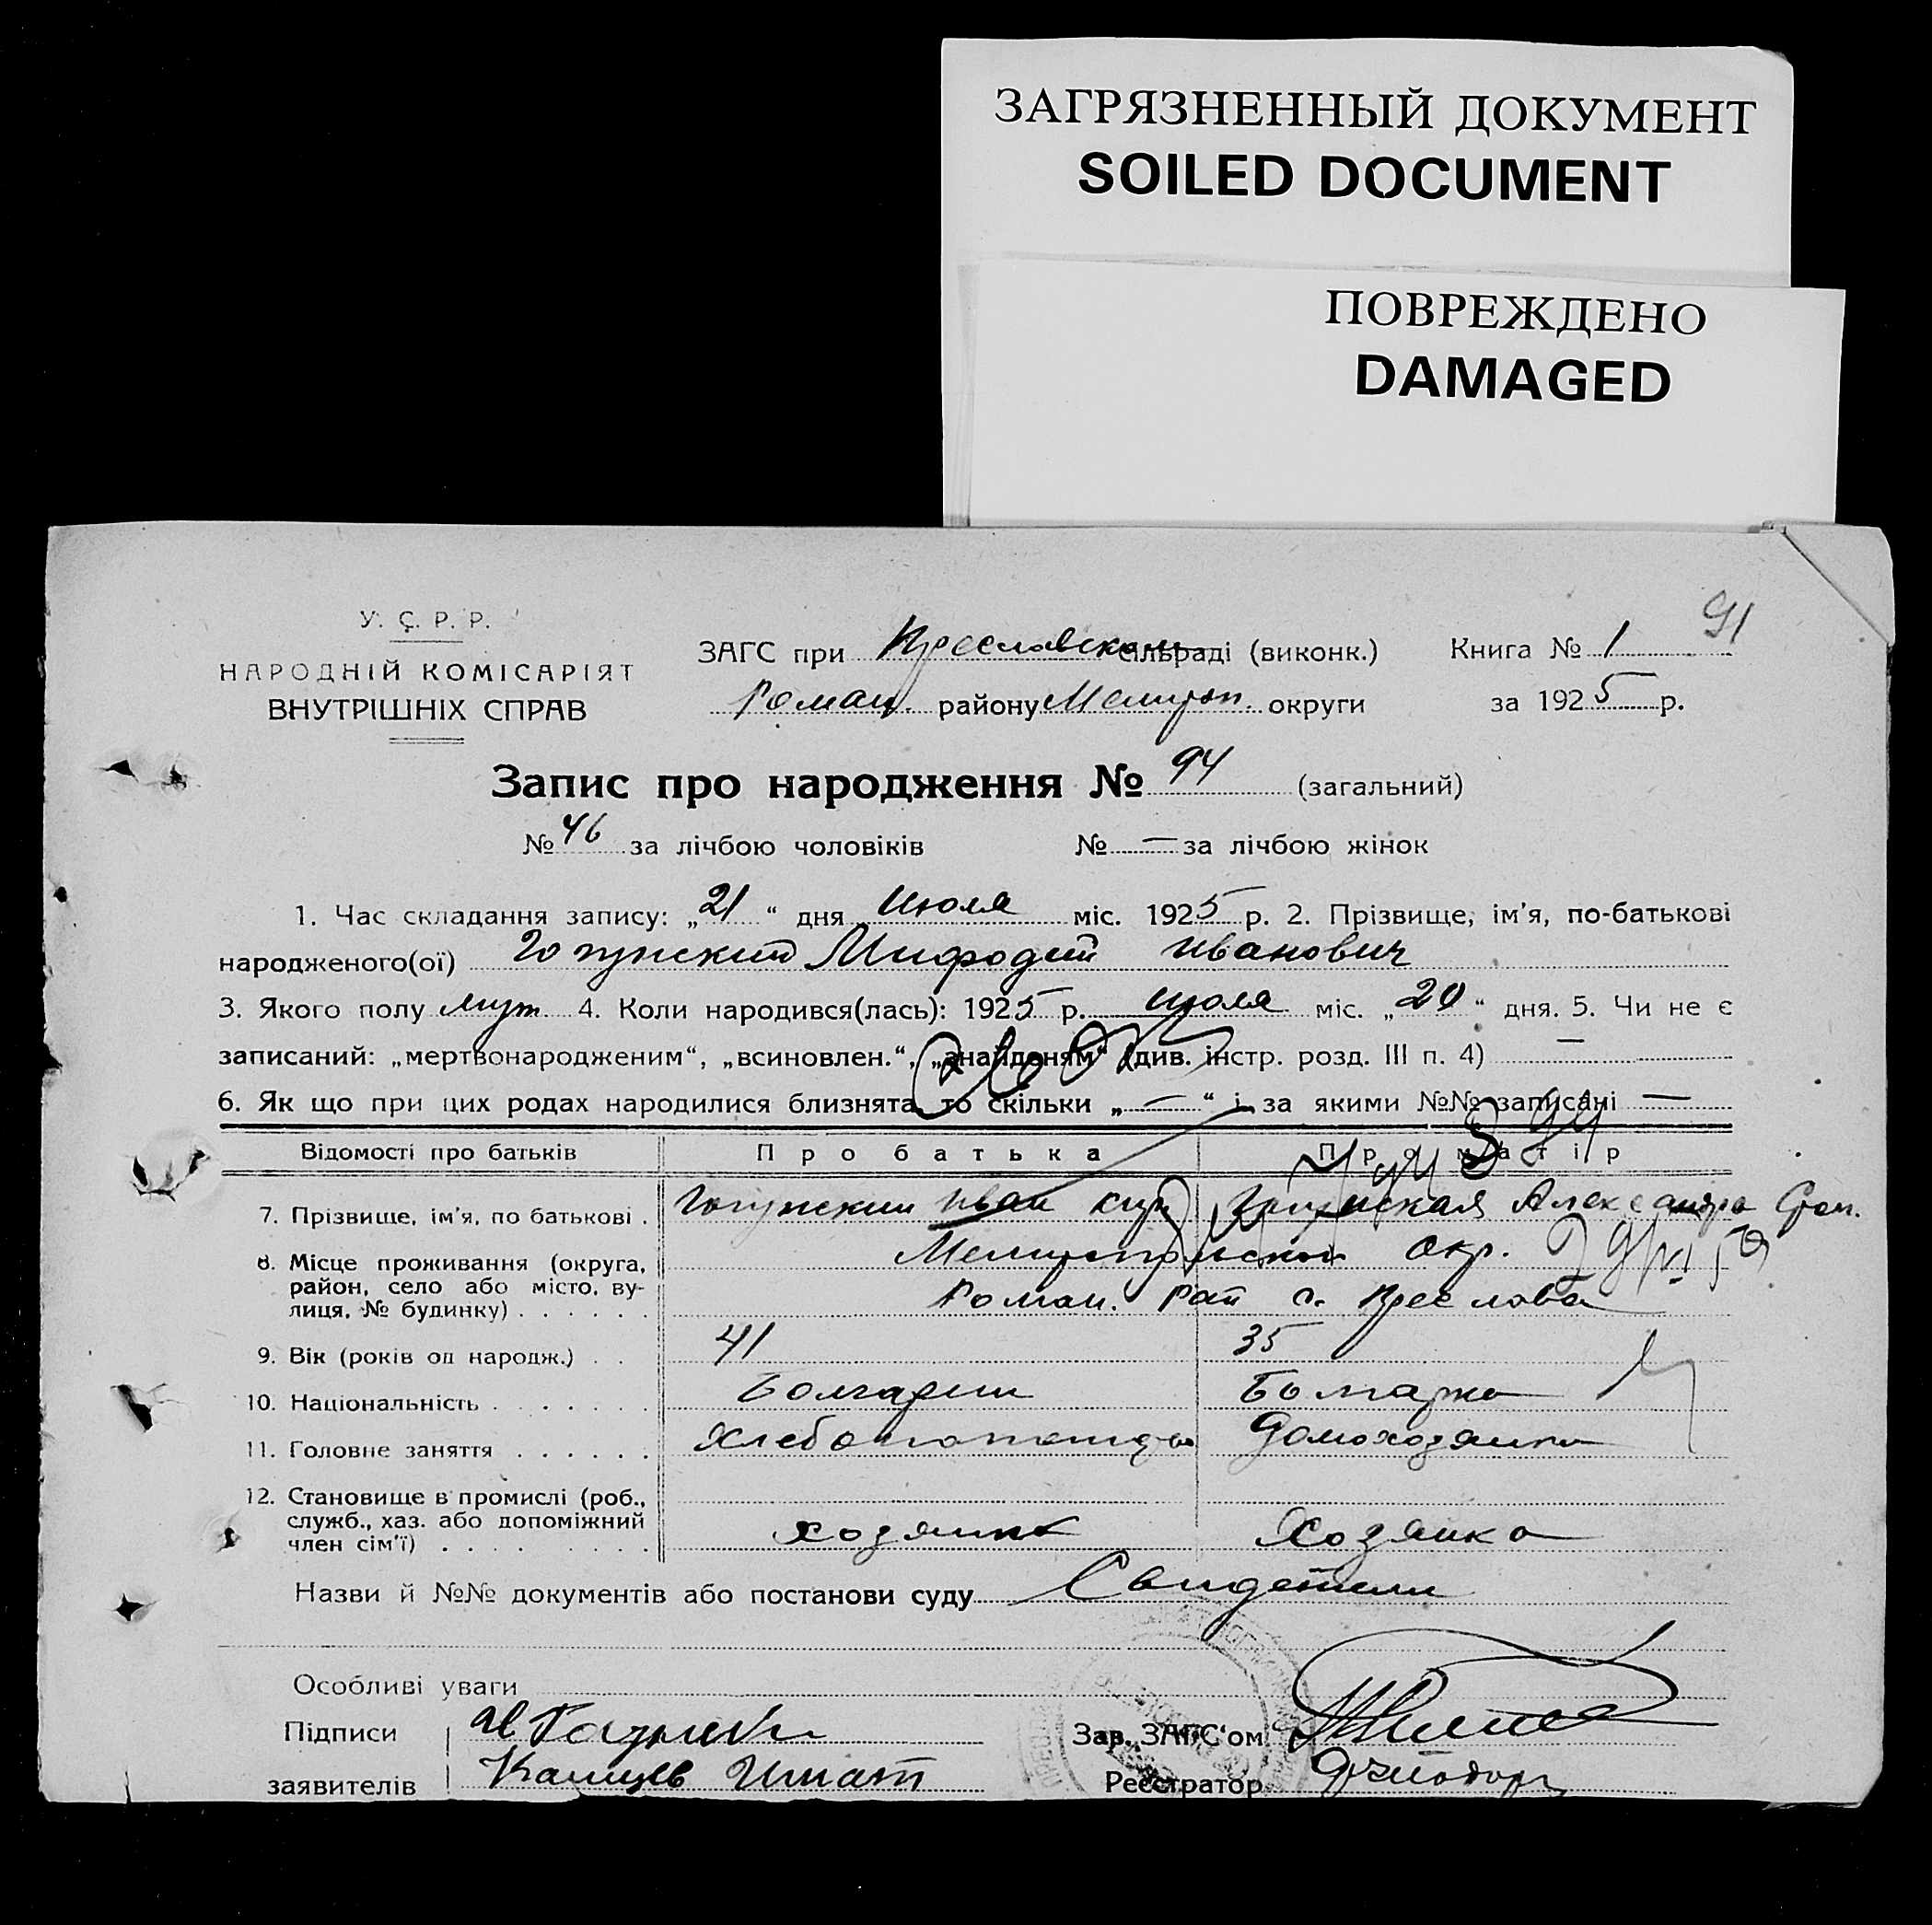 ЗАГРЯЗНЕННЫЙ ДОКУМЕНТ
SOILED DOCUMENT
ПОВРЕЖДЕНО
DAMAGED
91
У. С. Р. Р.
НАРОДНІЙ КОМІСАРІЯТ
ВНУТРІШНІХ СПРАВ
ЗАГС при Преславском сільраді (виконк.)
Роман. району Мелитоп. округи
Книга № 1
за 1925 р.
Запис про народження № 94 (загальний)
№ 46 за лічбою чоловіків № — за лічбою жінок
1. Час складання запису: „21“ дня Июля міс. 1925 р. 2. Прізвище, ім'я, по-батькові
народженого(ої) Мифодий Иванович
3. Якого полу муж. 4. Коли народився(лась): 1925 р. июля міс. „20“ дня. 5. Чи не є
записаний: „мертвонародженим“, „всиновлен.“, „знайденям“ (див. інстр. розд. III п. 4) —
6. Як що при цих родах народилися близнята, то скільки „—“ і за якими №№ записані —
Відомості про батьків Про батька Про матір
7. Прізвище, ім'я, по батькові . Иван Александра
8. Місце проживання (округа, район, село або місто, вулиця, № будинку) . . . . . . Мелитопольской Окр.
Роман. Рай с. Преслава
9. Вік (років од народж.) . . 41 35
10. Національність . . . . . . . Болгарин Болгарка
11. Головне заняття . . . . . . Домохозяйка
12. Становище в промислі (роб., служб., хаз. або допоміжний член сім'ї) . . . . . . . . хозяин Хозяйка
Назви й №№ документів або постанови суду Свидетели
Особливі уваги
Підписи
заявителів Игнат
Зав. ЗАГС'ом
Реєстратор